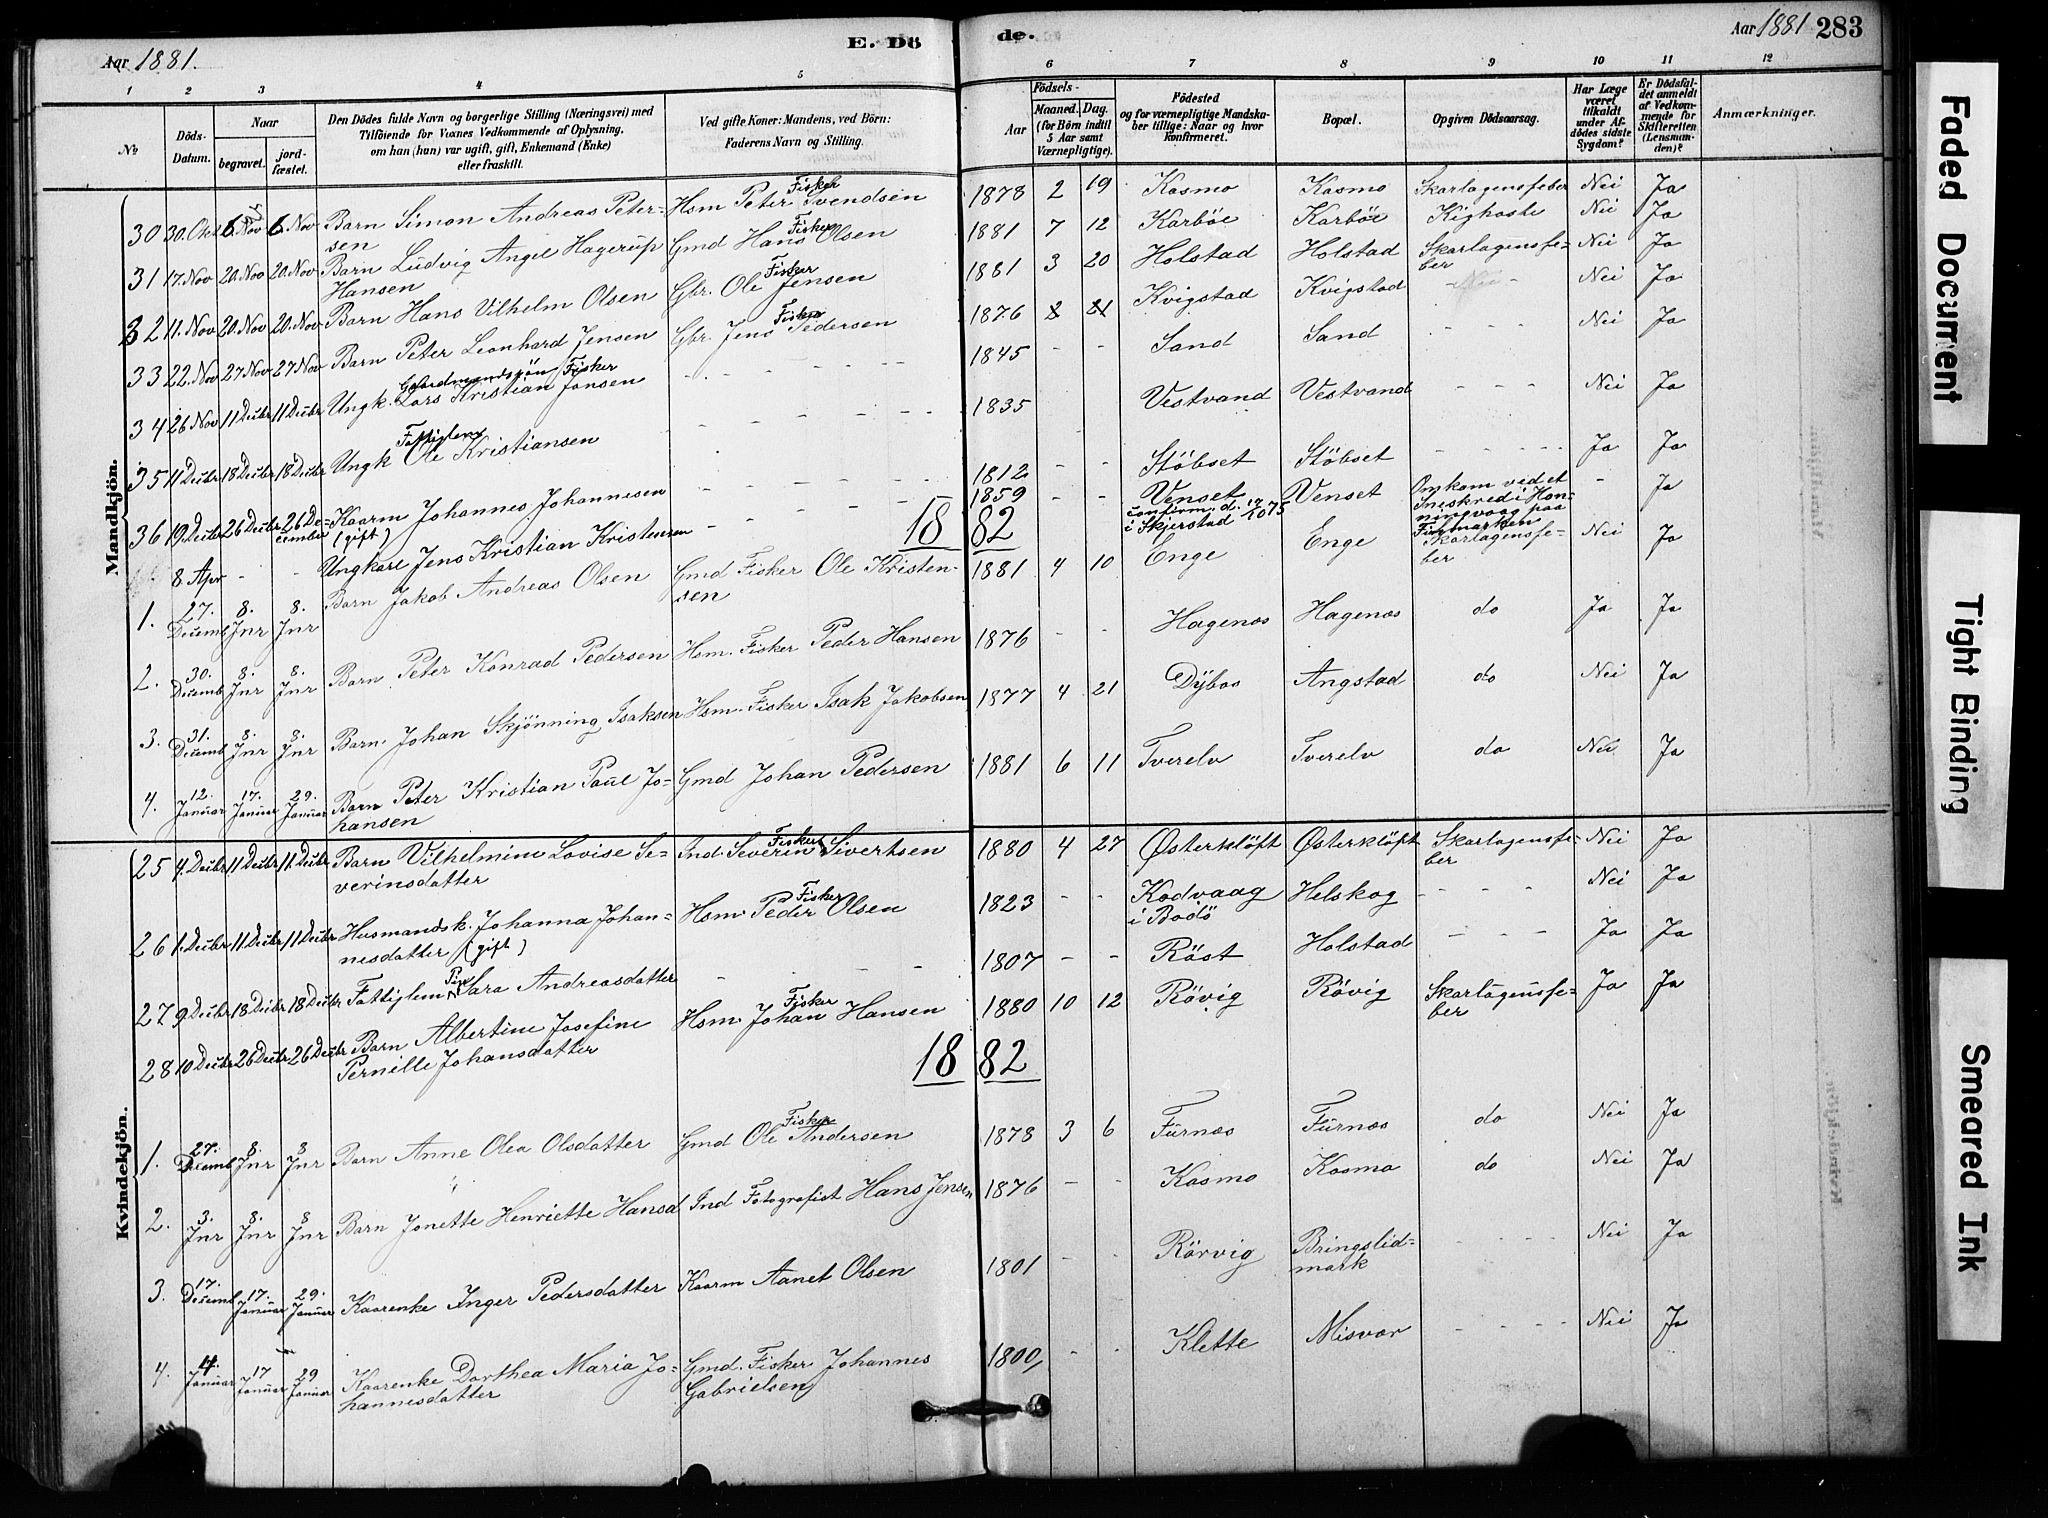 Aar 1881.
E. Dö
de.
Aar 1881 283
1 2 3 4 5 6 7 8 9 10 11 12
№
Döds-Datum.
Naar
begravet.
jord-fæstet.
Den Dödes fulde Navn og borgerlige Stilling (Næringsvei) med
Tilföiende for Voxnes Vedkommende af Oplysning,
om han (hun) var ugift, gift, Enkemand (Enke)
eller fraskilt.
Ved gifte Koner: Mandens, ved Börn:
Faderens Navn og Stilling.
Födsels-
Aar
Maaned. Dag.
(for Börn indtil
5 Aar samt
Værnepligtige).
Födested
og for værnepligtige Mandska-
ber tillige: Naar og hvor
konfirmeret.
Bopæl.
Opgiven Dödsaarsag.
Har Læge
været
tilkaldt
under Af-
dödes sidste
Sygdom?
Er Dödsfal-
det anmeldt
af Vedkom-
mende for
Skifteretten
(Lensman-
den)?
Anmærkninger.
Mandkjön.
30 30. Okt 6. Nov 6. Nov Barn Simon Andreas Peter-sen Hsm Peter Fisker Svendsen 1878 2 19 Kosmo Kosmo Skarlagensfeber Nei Ja
31 17. Nov 20. Nov 20. Nov Barn Ludvig Angel Hagerup Hansen Gmd Hans Fisker Olsen 1881 7 12 Karböe Karböe Kighoste Nei Ja
32 11. Nov 20. Nov 20. Nov Barn Hans Vilhelm Olsen Gbr. Ole Fisker Jensen 1881 3 20 Holstad Holstad Skarlagensfe-ber Nei Ja
33 22. Nov 27 Nov 27 Nov Barn Peter Leonhard Jensen Gbr. Jens Fisker Pedersen 1876 2 21 Kvigstad Kvigstad - - Nei Ja
34 26 Nov 11 Decbr 11 Decbr Ungk. Gaardmandssön Fisker Lars Kristian Jonsen - - - 1845 - - Sand Sand - - - Nei Ja
35 11 Decbr 18 Decbr 18 Decbr Ungk Fattiglem Ole Kristiansen - - - 1835 Vestvand Vestvand - - - Nei Ja
36 19. Decbr 26 Decbr 26 De-cember Kaarm Johannes Johannesen (gift) - - - 1812 - - Stöbset Stöbset - - - Ja Ja
8 Apr - - Ungkarl Jens Kristian Kristensen - - - 1859 - - Venset confirm. d. i Skjerstad Venset Omkom ved et Sneskred i Hon-ningvaag paa Finmarken - Ja
1882
1. 27. Decemb 8. Jnr 8. Jnr Barn Jakob Andreas Olsen Gmd Fisker Ole Kristen-sen 1881 4 10 Enge Enge Skarlagensfe-ber Nei Ja
2. 30. Decemb 8. Jnr 8. Jnr Barn Peter Konrad Pedersen Hsm. Fisker Peder Hansen 1876 - - Hagenæs Hagenæs do Ja Ja
3. 31. Decemb 8. Jnr 8. Jnr Barn. Johan Skjönning Isaksen Hsm. Fisker Isak Jakobsen 1877 4 21 Angstad do Nei Ja
4. 12. Januar 17. Januar 29. Januar Barn Peter Kristian Paul Jo-hansen Gmd Johan Pedersen 1881 6 11 Tverelv Tverelv do Nei Ja
Kvindekjön.
25 4. Decbr 11 Decbr 11 Decbr Barn Vilhelmine Lovise Se-verinsdatter Ind. Severin Fisker Sivertsen 1880 4 27 Østerklöft Østerklöft Skarlagensfe-ber Nei Ja
26 1. Decbr 11 Decbr 11 Decbr Husmandsk. Johanna Johan-nesdatter (gift) Hsm. Peder Fisker Olsen 1823 - - Kodvaag i Bodö Helskog - - - Nei Ja
27 9 Decbr 18 Decbr 18 Decbr Fattiglem Pige Sara Andreasdatter - - - 1807 - - Röst Holstad - - - Ja Ja
28 10 Decbr 26 Decbr 26 Decbr Barn Albertine Josefine Pernille Johansdatter Hsm. Johan Fisker Hansen 1880 10 12 Rövig Rövig Skarlagensfe-ber Ja Ja
1882
1. 27. Decemb 8. Jnr 8 Jnr Barn Anne Olea Olsdatter Gmd Ole Fisker Andersen 1878 3 6 Furnæs Furnæs do Nei Ja
2. 3. Jnr 8. Jnr 8 Jnr Barn Jonette Henriette Hansd Ind Fotografist Hans Jensen 1876 - - Kosmo Kosmo do Nei Ja
3. 17. Decemb 17. Januar 29. Januar Kaarenke Inger Pedersdatter Kaarm Aanet Olsen 1801 - - Rörvig Bringslid-mark - - - Nei Ja
4. 4 Januar 17 Januar 29 Januar Kaarenke Dorthea Maria Jo-hannesdatter Gmd. Fisker Johannes Gabrielsen 1800 - - Klette Misvær - - - Nei Ja
Faded Document
Tight Binding
Smeared Ink